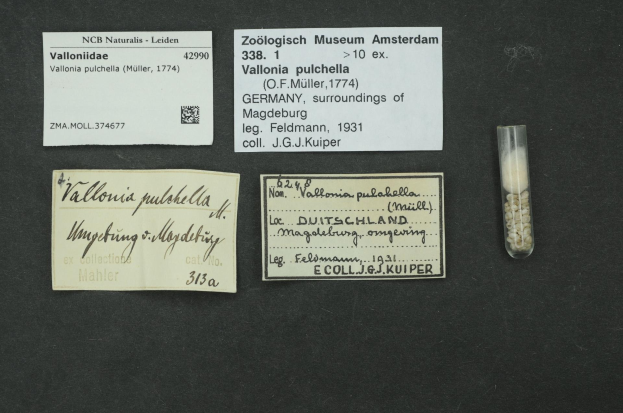 NCB Naturalis - Leiden
Valloniidae 42990
Vallonia pulchella (Müller, 1774)
ZMA.MOLL.374677
Zoölogisch Museum Amsterdam
338. 1 >10 ex.
Vallonia pulchella
(O.F.Müller,1774)
GERMANY, surroundings of
Magdeburg
leg. Feldmann, 1931
coll. J.G.J.Kuiper
Vallonia pulchella
M.
Umgebung v. Magdeburg
ex collectione cat. No.
Mahler 313a
Nom. Vallonia pulchella
(Müll.)
Loc. DUITSCHLAND
Magdeburg, omgeving
Leg. Feldmann, 1931
E COLL. J.G.J. KUIPER